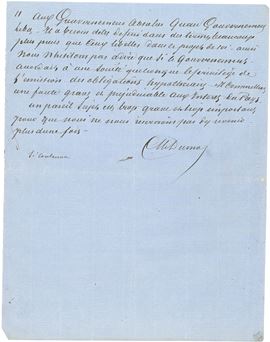 aux Gouvernements absolus qu'aux Gouvernements
libres. Il a besoin d'être défini dans des termes beaucoup
plus précis que ceux libellés dans le projet de loi. aussi
nous n'hésitons pas à dire que si le Gouvernement
à une société quelconque le privilège de
l'émission des obligations hypothécaires. Il commettra
une faute grave et préjudiciable aux intérêts du pays
un pareil sujet est trop grave et trop important
pour que nous ne nous revenions pas y revenir
plus d'une fois.
à Continuer